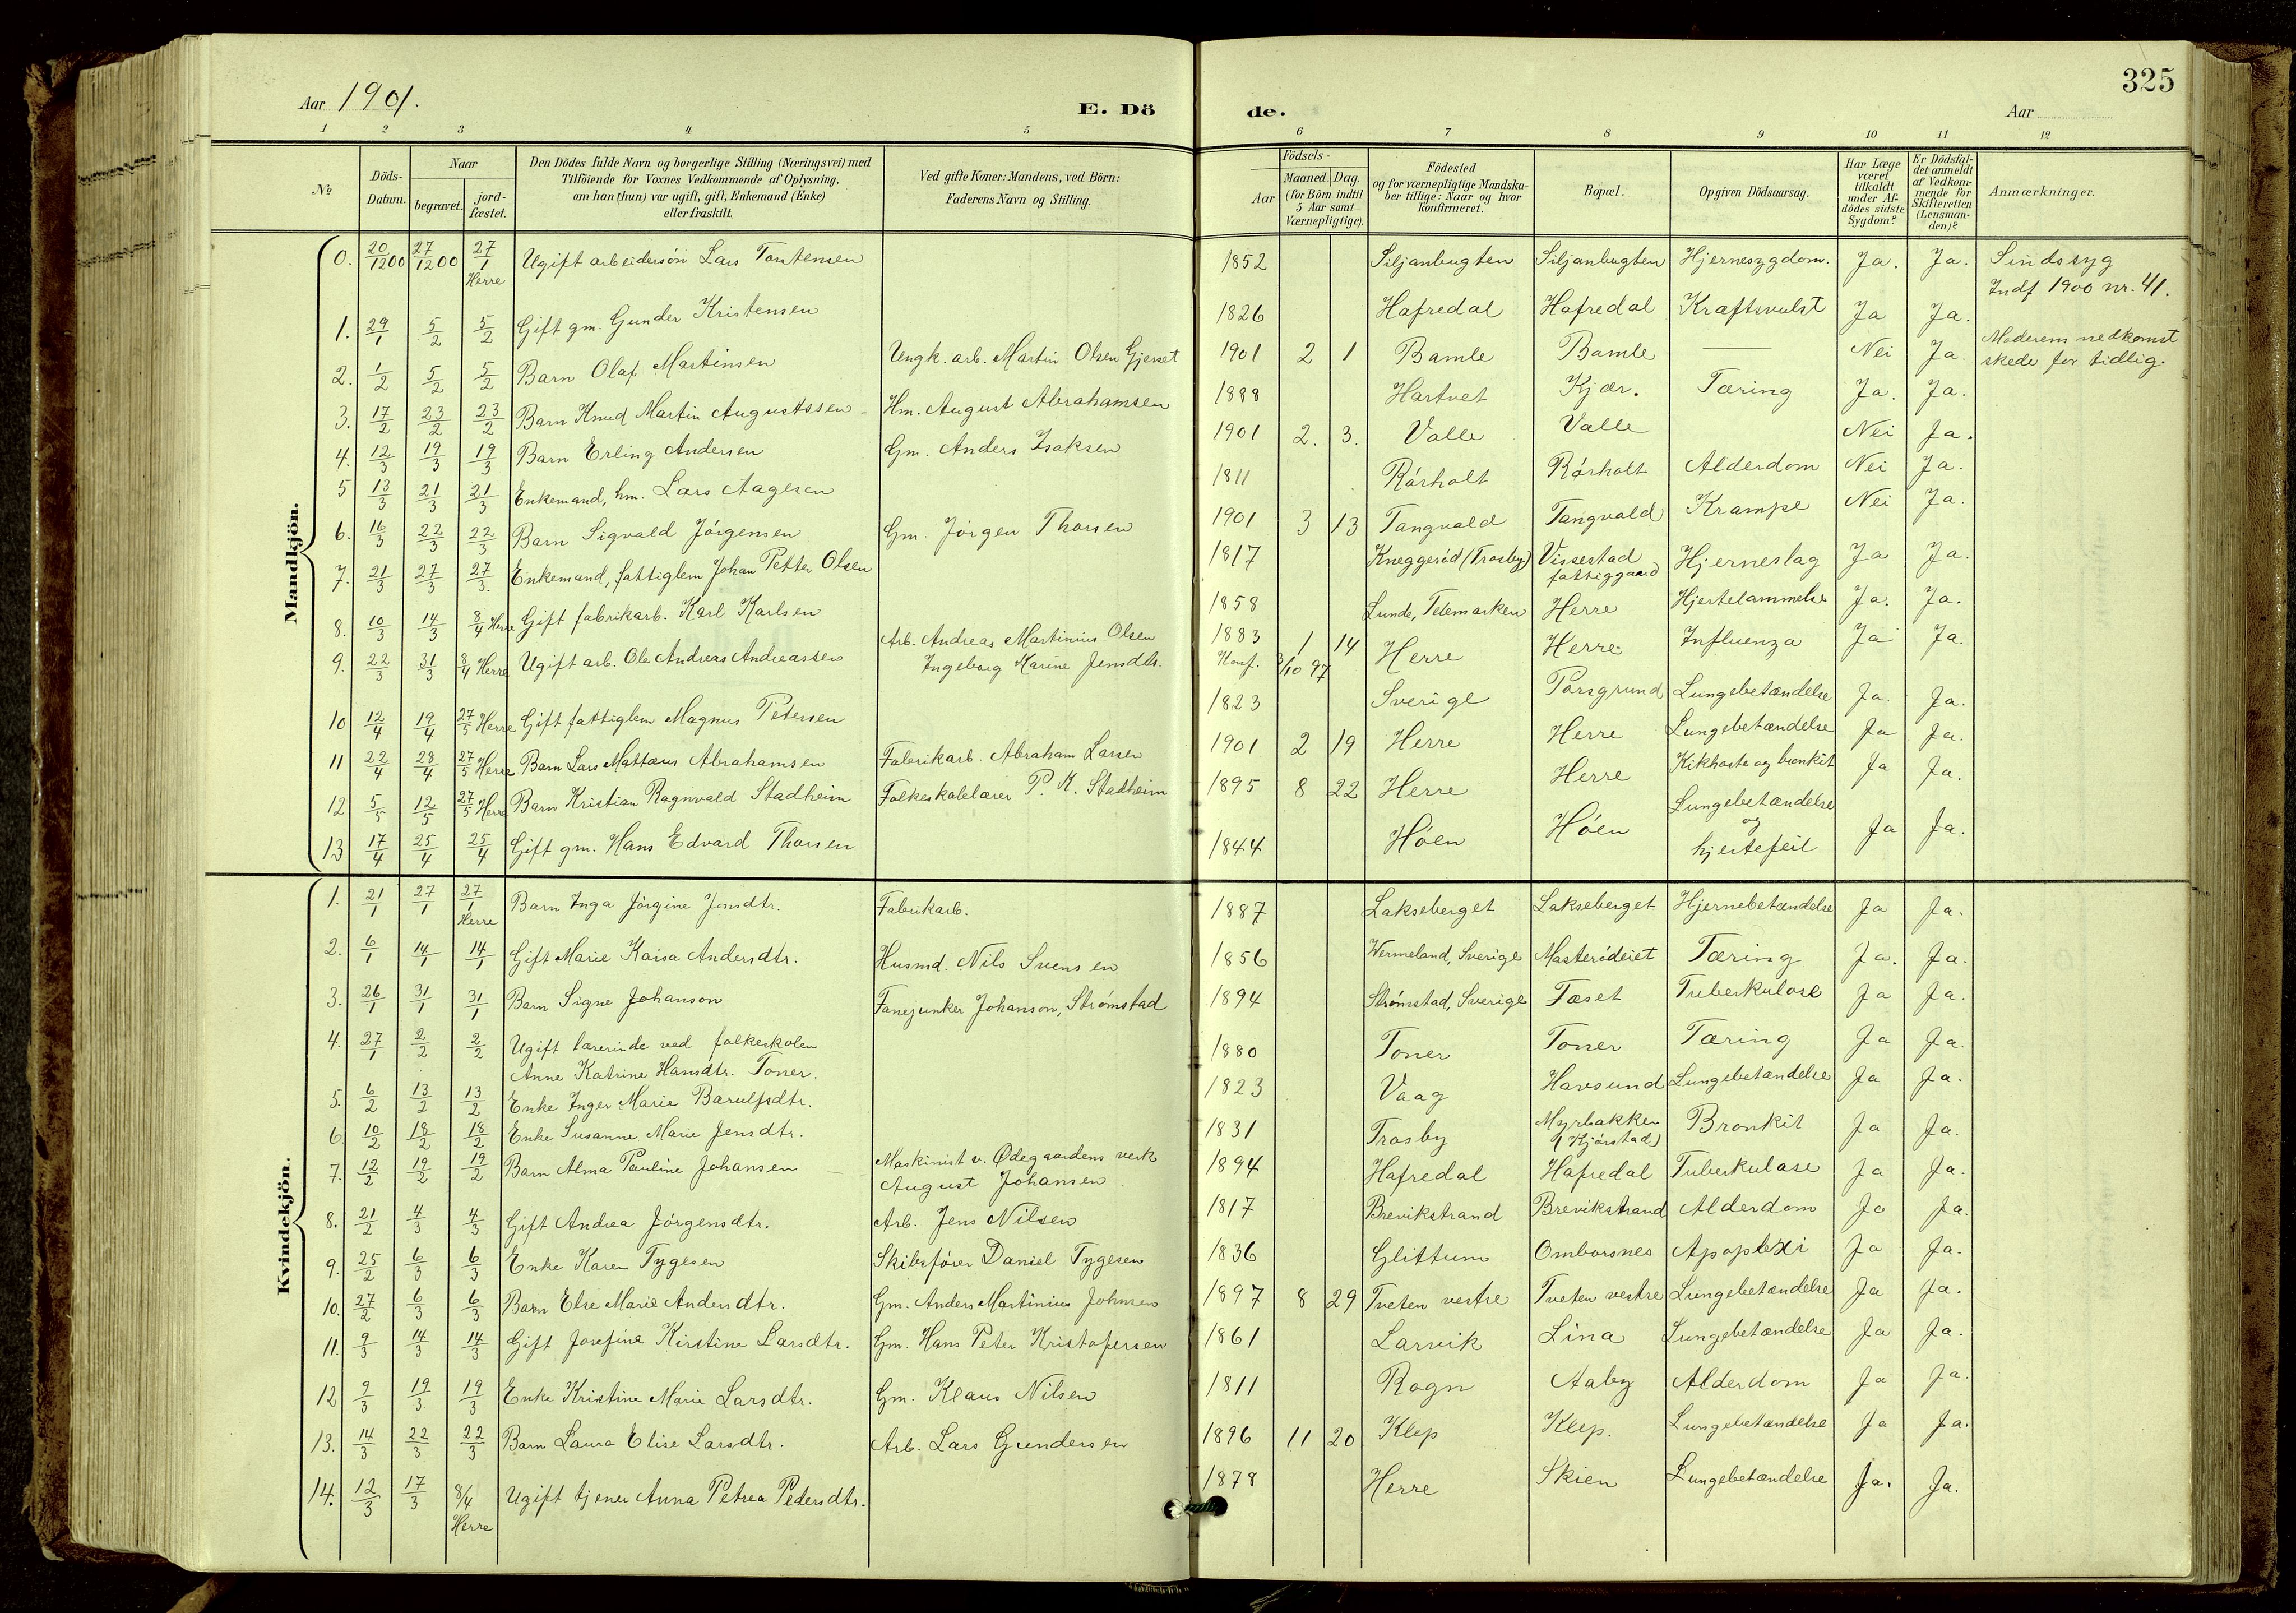 325
Aar 1901. E. Dö de. Aar
1 2 3 4 5 6 7 8 9 10 11 12
№ Döds-Datum. Naar begravet. jord-fæstet. Den Dödes fulde Navn og borgerlige Stilling (Næringsvei) med Tilföiende for Voxnes Vedkommende af Oplysning, om han (hun) var ugift, gift, Enkemand (Enke) eller fraskilt. Ved gifte Koner: Mandens, ved Börn: Faderens Navn og Stilling. Födsels- Aar Maaned. Dag. (for Börn indtil 5 Aar samt Værnepligtige). Födested og for værnepligtige Mandskaber tillige: Naar og hvor konfirmeret. Bopæl. Opgiven Dödsaarsag. Har Læge været tilkaldt under Afdödes sidste Sygdom? Er Dödsfaldet anmeldt af Vedkommende for Skifteretten (Lensmanden)? Anmærkninger.
Mandkjön.
0. 20/12 00 27/12 00 27/1 Herre Ugift arbeidersön Lars Torstensen 1852 Siljanbugten Siljanbugten Hjernesygdom. Ja. Ja. Sindssyg
Indf 1900 nr. 41.
1. 29/1 5/2 5/2 Gift gm. Gunder Kristensen 1826 Hafredal Hafredal Kræftsvulst Ja Ja.
2. 1/2 5/2 5/2 Barn Olaf Martinsen Ungk. arb. Martin Olsen Gjerset 1901 2 1 Bamle Bamle — Nei Ja. Moderens nedkomst
skede for tidlig.
3. 17/2 23/2 23/2 Barn Knud Martin Augustssen Hm. August Abrahamsen 1888 Hartvet Kjær. Tæring Ja. Ja.
4. 12/3 19/3 19/3 Barn Erling Andersen Gm. Anders Isaksen 1901 2. 3. Valle Valle Nei Ja.
5 13/3 21/3 21/3 Enkemand, hm. Lars Aagesen 1811 Rórholt Rórholt Alderdom Nei Ja.
6. 16/3 22/3 22/3 Barn Sigvald Jörgensen Gm. Jörgen Thorsen 1901 3 13 Tangvald Tangvald Krampe Nei Ja.
7. 21/3 27/3 27/3. Enkemand, fattiglem Johan Petter Olsen 1817 Kneggeröd (Trosby) Vissestad fattiggaard Hjerneslag Ja Ja.
8. 10/3 14/3 8/4 Herre Gift fabrikarb. Karl Karlsen 1858 Lunde, Telemarken Herre Hjertelammelse Ja. Ja.
9. 22/3 31/3 8/4 Herre Ugift arb. Ole Andreas Andreassen Arb. Andreas Martinius Olsen 1883 1 14 Herre Herre Influenza Ja Ja.
Ingeborg Karine Jensdtr. Konf. 3/10 97
10 12/4 19/4 27/5 Herre Gift fattiglem Magnus Petersen 1823 Sverige Porsgrund Lungebetændelse Ja. Ja.
11 22/4 28/4 27/5 Herre Barn Lars Mattæus Abrahamsen Fabrikarb. Abraham Larsen 1901 2 19 Herre Herre Lungebetændelse Ja Ja.
12 5/5 12/5 27/5 Herre Barn Kristian Ragnvald Stadheim Folkeskolelærer P. K. Stadheim 1895 8 22 Herre Herre Kikhoste og bronkit Ja Ja.
13 17/4 25/4 25/4 Gift gm. Hans Edvard Thorsen 1844 Höen Höen Lungebetændelse og hjertefeil Ja Ja.
Kvindekjön.
1. 21/1 27/1 27/1 Herre Barn Inga Jörgine Jensdtr. Fabrikarb. 1887 Lakseberget Lakseberget Hjernebetændelse Ja Ja.
2. 6/1 14/1 14/1 Gift Marie Kaisa Andersdtr. Husmd. Nils Svensen 1856 Wermeland, Sverige Masterödeiet Tæring Ja. Ja.
3. 26/1 31/1 31/1 Barn Signe Johanson Fanejunker Johanson, Strömstad 1894 Strömstad, Sverige Tæset Tuberkulose Ja Ja.
4. 27/1 2/2 2/2 Ugift lærerinde ved folkeskolen
Anne Katrine Hansdtr. Toner. 1880 Toner Toner Tæring Ja Ja.
5. 6/2 13/2 13/2 Enke Inger Marie Børulfsdtr. 1823 Vaag Havsund Lungebetændelse Ja Ja.
6 10/2 18/2 18/2 Enke Susanne Marie Jensdtr. 1831 Trosby Myrbakken (Kjørstad) Bronkit Ja Ja.
7. 12/2 19/2 19/2 Barn Alma Pauline Johansen Maskinist v. Ødegaardens verk
August Johansen 1894 Hafredal Hafredal Tuberkulose Ja Ja.
8. 21/2 4/3 4/3 Gift Andrea Jörgensdtr. Arb. Jens Nilsen 1817 Brevikstrand Brevikstrand Alderdom Ja Ja.
9. 25/2 6/3 6/3 Enke Karen Tygesen Skibsfører Daniel Tygesen 1836 Glittum Omborsnes Apoplexi Ja Ja.
10. 27/2 6/3 6/3 Barn Else Marie Andersdtr. Gm. Anders Martinius Johnsen 1897 8 29 Tveten vestre Tveten vestre Lungebetændelse Ja Ja.
11. 9/3 14/3 14/3 Gift Josefine Kirstine Larsdtr. Gm. Hans Peter Kristofersen 1861 Larvik Lina Lungebetændelse Ja Ja.
12 9/3 19/3 19/3 Enke Kristine Marie Larsdtr. Gm. Klaus Nilsen 1811 Rogn Aaby Alderdom Ja Ja.
13. 14/3 22/3 22/3 Barn Laura Elise Larsdtr. Arb. Lars Gundersen 1896 11 20 Klep Klep. Lungebetændelse Ja Ja.
14. 12/3 17/3 8/4 Herre Ugift tjener Anna Petrea Pedersdtr. 1878 Herre Skien Lungebetændelse Ja. Ja.